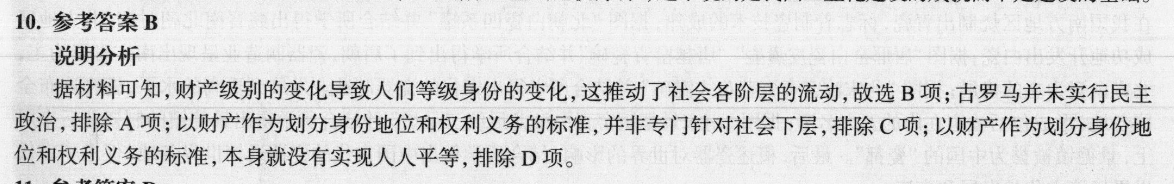 10. 参考答案 B
说明分析
据材料可知,财产级别的变化导致人们等级身份的变化,这推动了社会各阶层的流动,故选 B 项;古罗马并未实行民主
政治,排除 A 项;以财产作为划分身份地位和权利义务的标准,并非专门针对社会下层,排除 C 项;以财产作为划分身份地
位和权利义务的标准,本身就没有实现人人平等,排除 D 项。